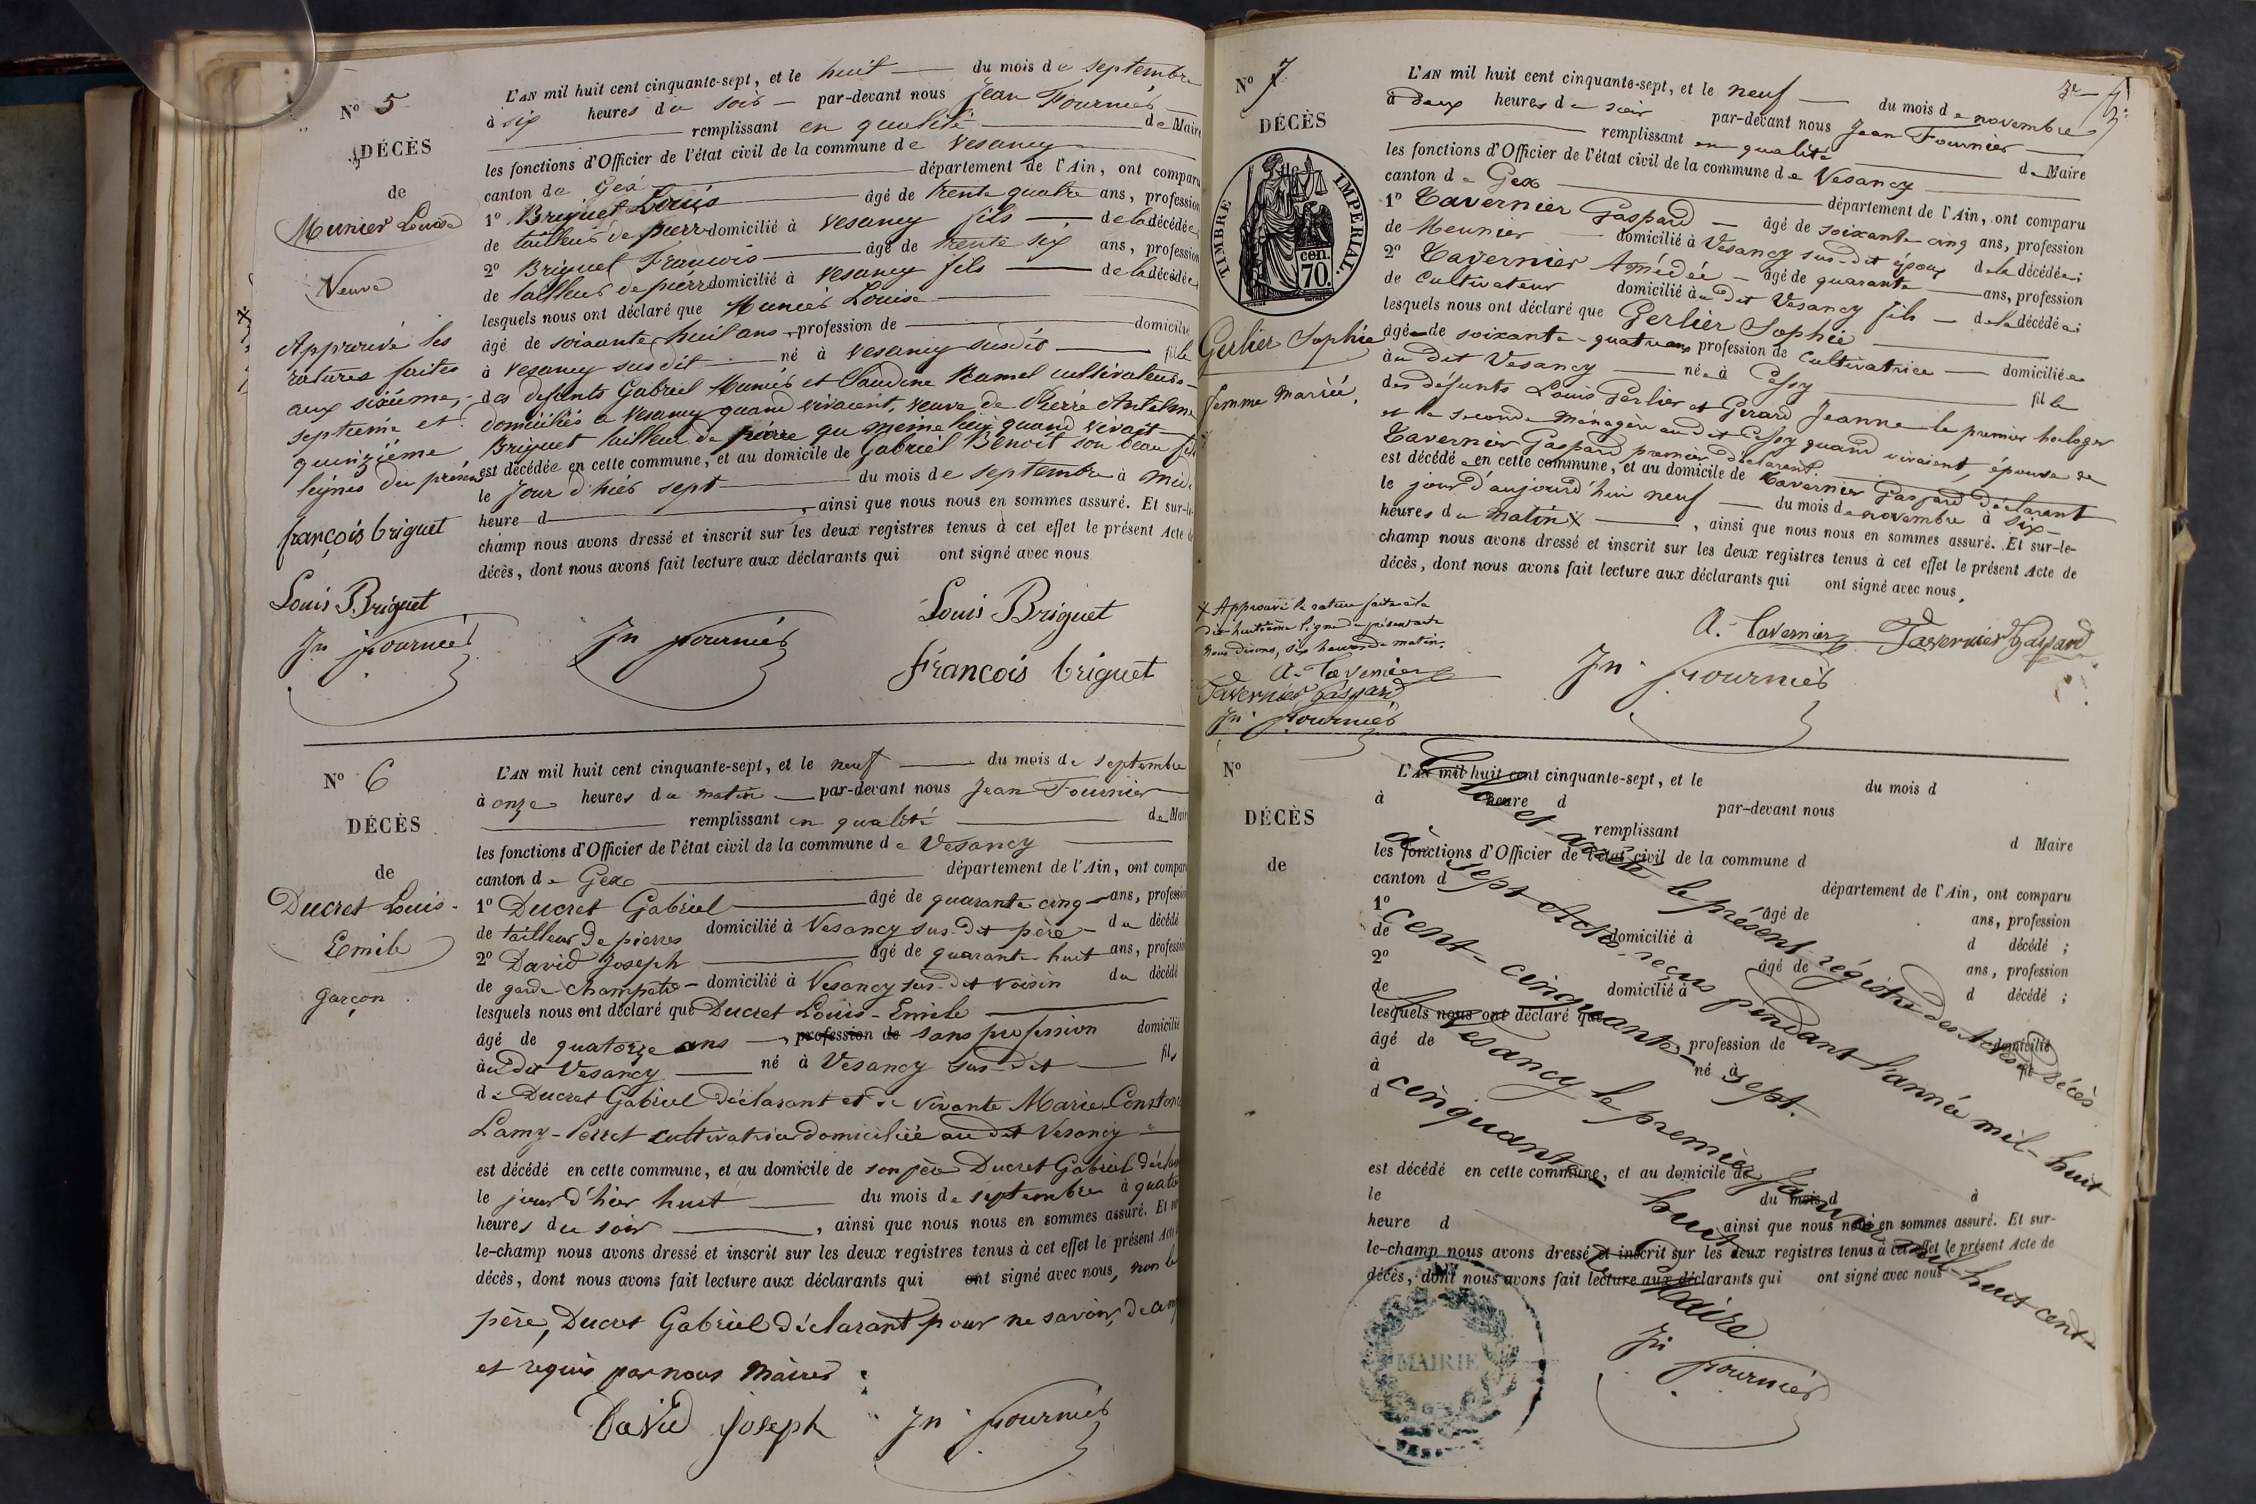 N° 5
DÉCÈS
de
Munier Louise
Veuve
Approuvé les
ratures faites
aux sixième,
septieme et
quinzième
lignes du présent
françois briguet
Louis Briguet
Jn fournier
L'AN mil huit cent cinquante-sept, et le huit du mois de septembre
à six heures du soir par-devant nous Jean Fournier
remplissant en qualité de Maire
les fonctions d'Officier de l'état civil de la commune de Vesancy
canton de Gex département de l'Ain, ont comparu
1° Briguet Louis âgé de trente quatre ans, profession
de tailleur de pierre domicilié à Vesancy fils de la décédée
2° Briguet François âgé de trente six ans, profession
de tailleur de pierre domicilié à Vesancy fils de la décédée
lesquels nous ont déclaré que Munier Louise
âgé de soixante huit ans, profession de domicilié
à Vesancy susdit né à Vesancy susdit fille
des defunts Gabriel Munier et Claudine Ramel cultivateurs
domiciliés a Vesancy quand vivaient, veuve de Pierre Antelme
Briguet tailleur de pierre au meme lieu quand vivait
est décédée en cette commune, et au domicile de Gabriel Benoit son beau fils
le jour d'hier sept du mois de septembre à midi
heure d , ainsi que nous nous en sommes assuré. Et sur-le-
champ nous avons dressé et inscrit sur les deux registres tenus à cet effet le présent Acte de
décès, dont nous avons fait lecture aux déclarants qui ont signé avec nous
Jn fournier
Louis Briguet
François briguet
N° 6
DÉCÈS
de
Ducret Louis-
Emile
garçon
L'AN mil huit cent cinquante-sept, et le neuf du mois de septembre
à onze heures du matin par-devant nous Jean Fournier
remplissant en qualité de Maire
les fonctions d'Officier de l'état civil de la commune de Vesancy
canton de Gex département de l'Ain, ont comparu
1° Ducret Gabriel âgé de quarante cinq ans, profession
de tailleur de pierres domicilié à Vesancy sus-dit père du décédé
2° David Joseph âgé de quarante-huit ans, profession
de garde champêtre domicilié à Vesancy sus-dit voisin du décédé
lesquels nous ont déclaré que Ducret Louis-Emile
âgé de quatorze ans, profession de sans profession domicilié
au dit Vesancy né à Vesancy sus-dit fils
de Ducret Gabriel déclarant et de vivante Marie Constance
Lamy-Perret cultivatrice domiciliée au dit Vesancy
est décédé en cette commune, et au domicile de son père Ducret Gabriel déclarant
le jour d'hier huit du mois de septembre à quatre
heures du soir , ainsi que nous nous en sommes assuré. Et sur-
le-champ nous avons dressé et inscrit sur les deux registres tenus à cet effet le présent Acte de
décès, dont nous avons fait lecture aux déclarants qui ont signé avec nous, non le
père, Ducret Gabriel déclarant pour ne savoir, de ce
et requis par nous Maire
David Joseph
Jn fournier
N° 7
DÉCÈS
TIMBRE IMPERIAL.
cen.
70.
Gerlier Sophie
femme Mariée.
L'AN mil huit cent cinquante-sept, et le neuf du mois de novembre
à deux heures du soir par-devant nous Jean Fournier
remplissant en qualité de Maire
les fonctions d'Officier de l'état civil de la commune de Vesancy
canton de Gex département de l'Ain, ont comparu
1° Tavernier Gaspard âgé de soixante-cinq ans, profession
de Meunier domicilié à Vesancy sus-dit époux de la décédée;
2° Tavernier Amédée âgé de quarante ans, profession
de Cultivateur domicilié au dit Vesancy fils de la décédée;
lesquels nous ont déclaré que Gerlier Sophie
âgée de soixante-quatre ans profession de Cultivatrice domiciliée
au dit Vesancy née à Cessy fille
des défunts Louis Gerlier et Girard Jeanne le premier horloger
et la seconde ménagère au dit Cessy quand vivaient, épouse de
Tavernier Gaspard premier déclarant.
est décédé en cette commune, et au domicile de Tavernier Gaspard déclarant
le jour d'aujourd'hui neuf du mois de novembre à six
heures du matin X , ainsi que nous nous en sommes assuré. Et sur-le-
champ nous avons dressé et inscrit sur les deux registres tenus à cet effet le présent Acte de
décès, dont nous avons fait lecture aux déclarants qui ont signé avec nous,
X Approuvé la rature faite à la
dix-huitième ligne du présent acte
nous disons, six heures du matin.
A. Tavernier
Tavernier Gaspard
Jn fournier
A. Tavernier
Tavernier Gaspard
Jn fournier
N°
DÉCÈS
de
L'AN mil huit cent cinquante-sept, et le du mois d
à heure d par-devant nous
remplissant d Maire
les fonctions d'Officier de l'état civil de la commune d
canton d département de l'Ain, ont comparu
1° âgé de ans, profession
de domicilié à d décédé ;
2° âgé de ans, profession
de domicilié à d décédé ;
lesquels nous ont déclaré que
âgé de profession de domicilié
à né à fil
d
est décédé en cette commune, et au domicile de
le du mois d à
heure d ainsi que nous nous en sommes assuré. Et sur-
le-champ nous avons dressé et inscrit sur les deux registres tenus à cet effet le présent Acte de
décès, dont nous avons fait lecture aux déclarants qui ont signé avec nous
Clos et arrêté le présent régistre des Actes de Décès
à sept Actes reçus pendant l'année mil-huit
cent-cinquante-sept.
Vesancy le premier Janvier mil-huit-cent-
cinquante-huit
Le Maire
Jn fournier
MAIRIE